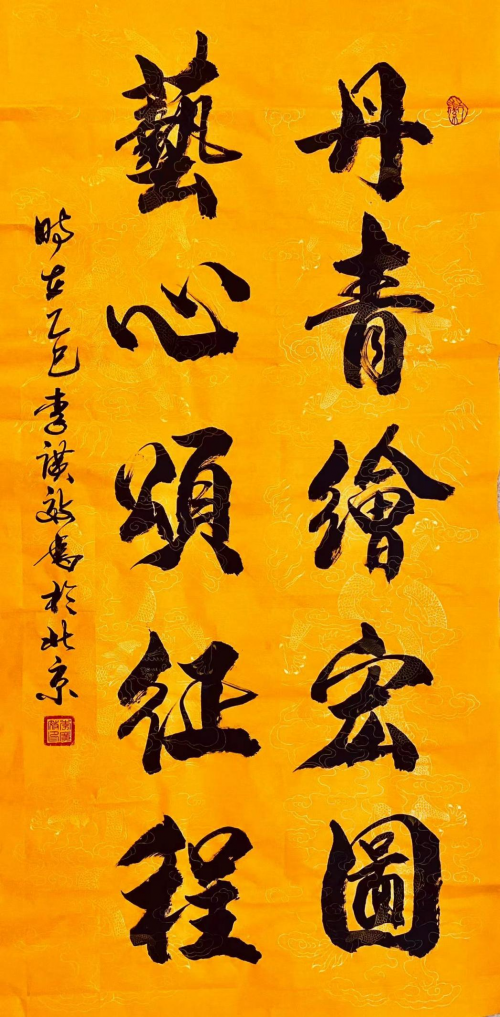 丹青繪宏圖
藝心頌征程
時在乙巳李謨啟書於北京